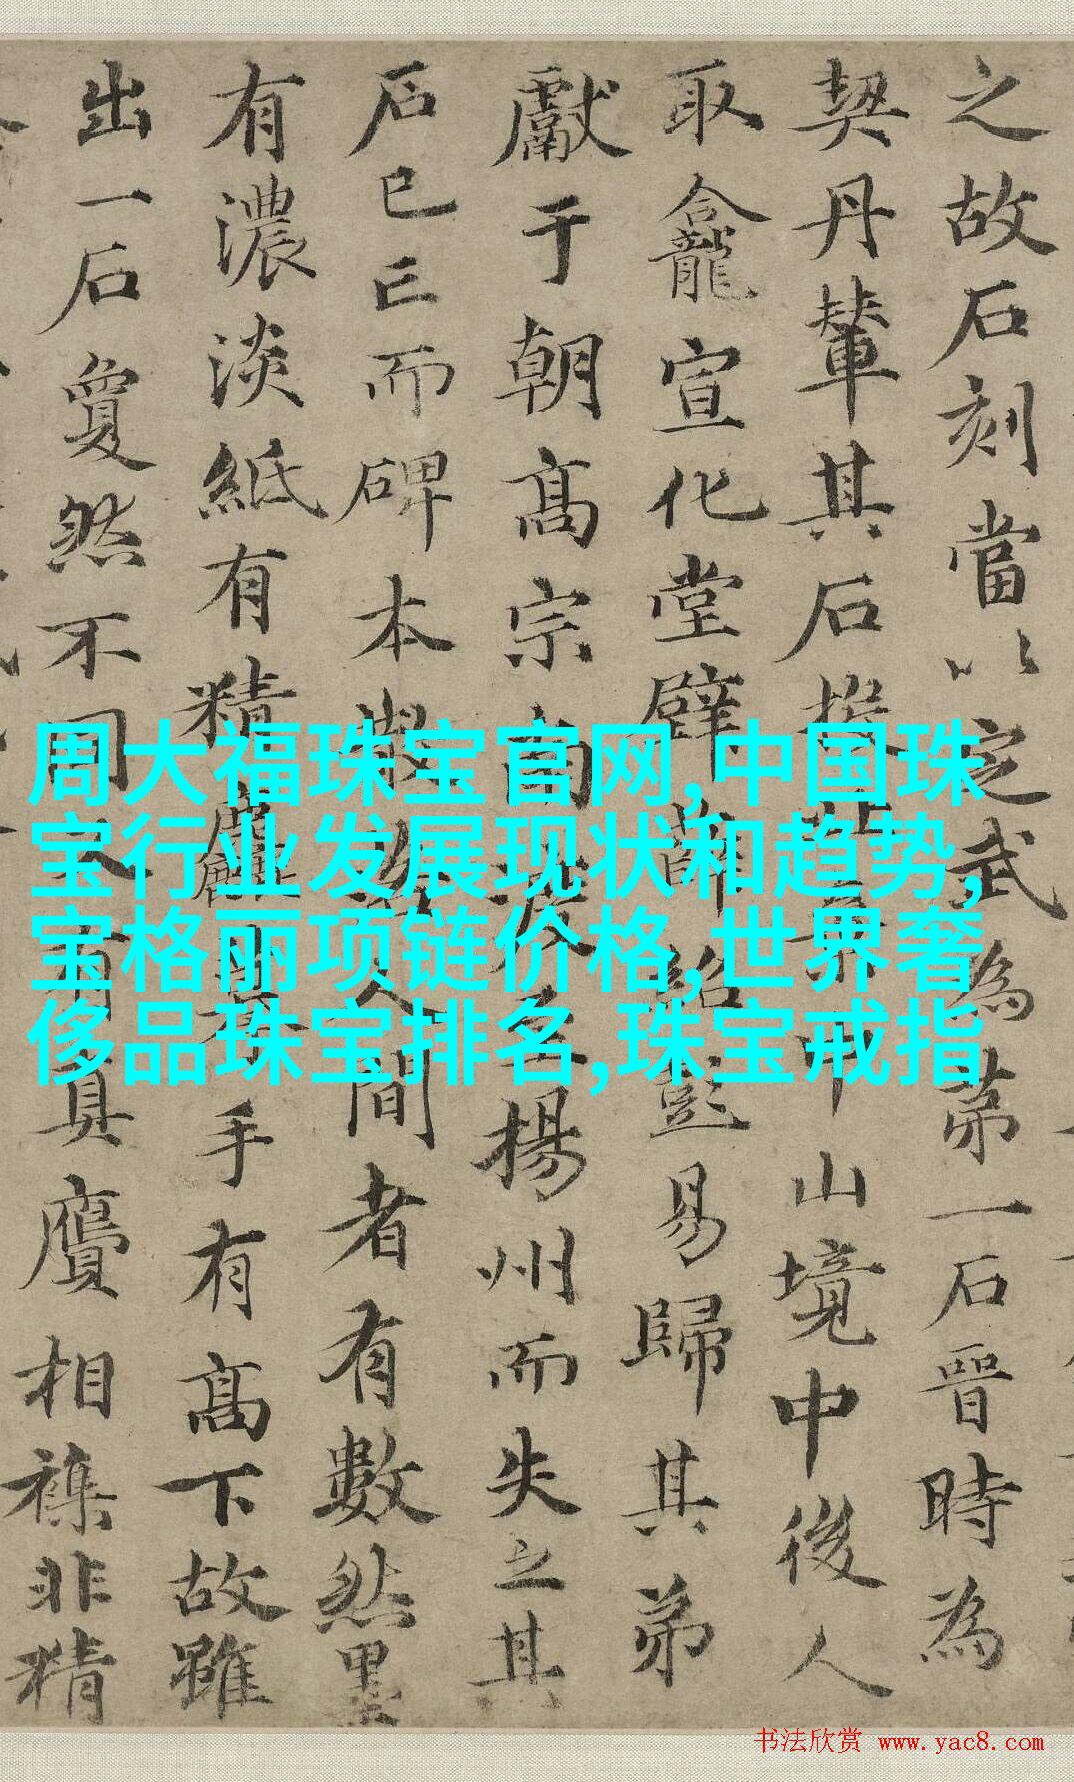 之故石刻當以定武為第一石晉時為
契丹輦其石投棄中山境中後人
取龕宣化堂壁薛紹彭易歸其弟
獻于朝髙宗南渡至揚州而失之其
石已亡而碑本散落人間者有數然墨
有濃淡紙有精麤手有髙下故雖
出一石敻然不同有真贗相襍非精
周大福珠宝官网,中国珠
宝行业发展现状和趋势,
宝格丽项链价格,世界奢
侈品珠宝排名,珠宝戒指
书法欣赏 www.yac8.com